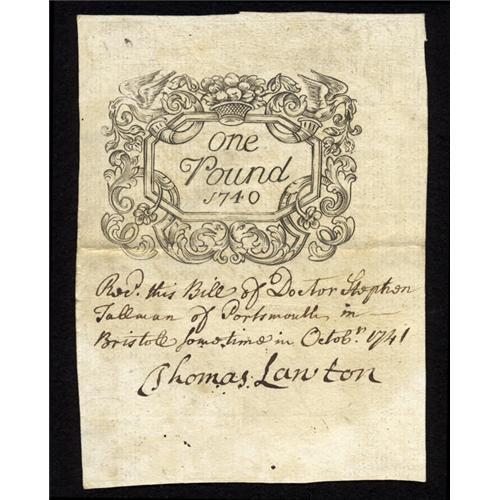 One
Pound
1740
Recd. this Bill of Doctor Stephen
Tallman of Portsmouth in
Bristoll sometime in Octobr. 1741
Thomas Lawton